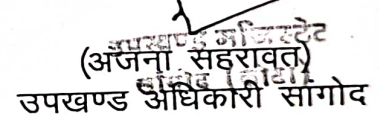 उपखण्ड मजिस्ट्रेट
(अंजना सहरावत)
उपखण्ड अधिकारी सांगोद